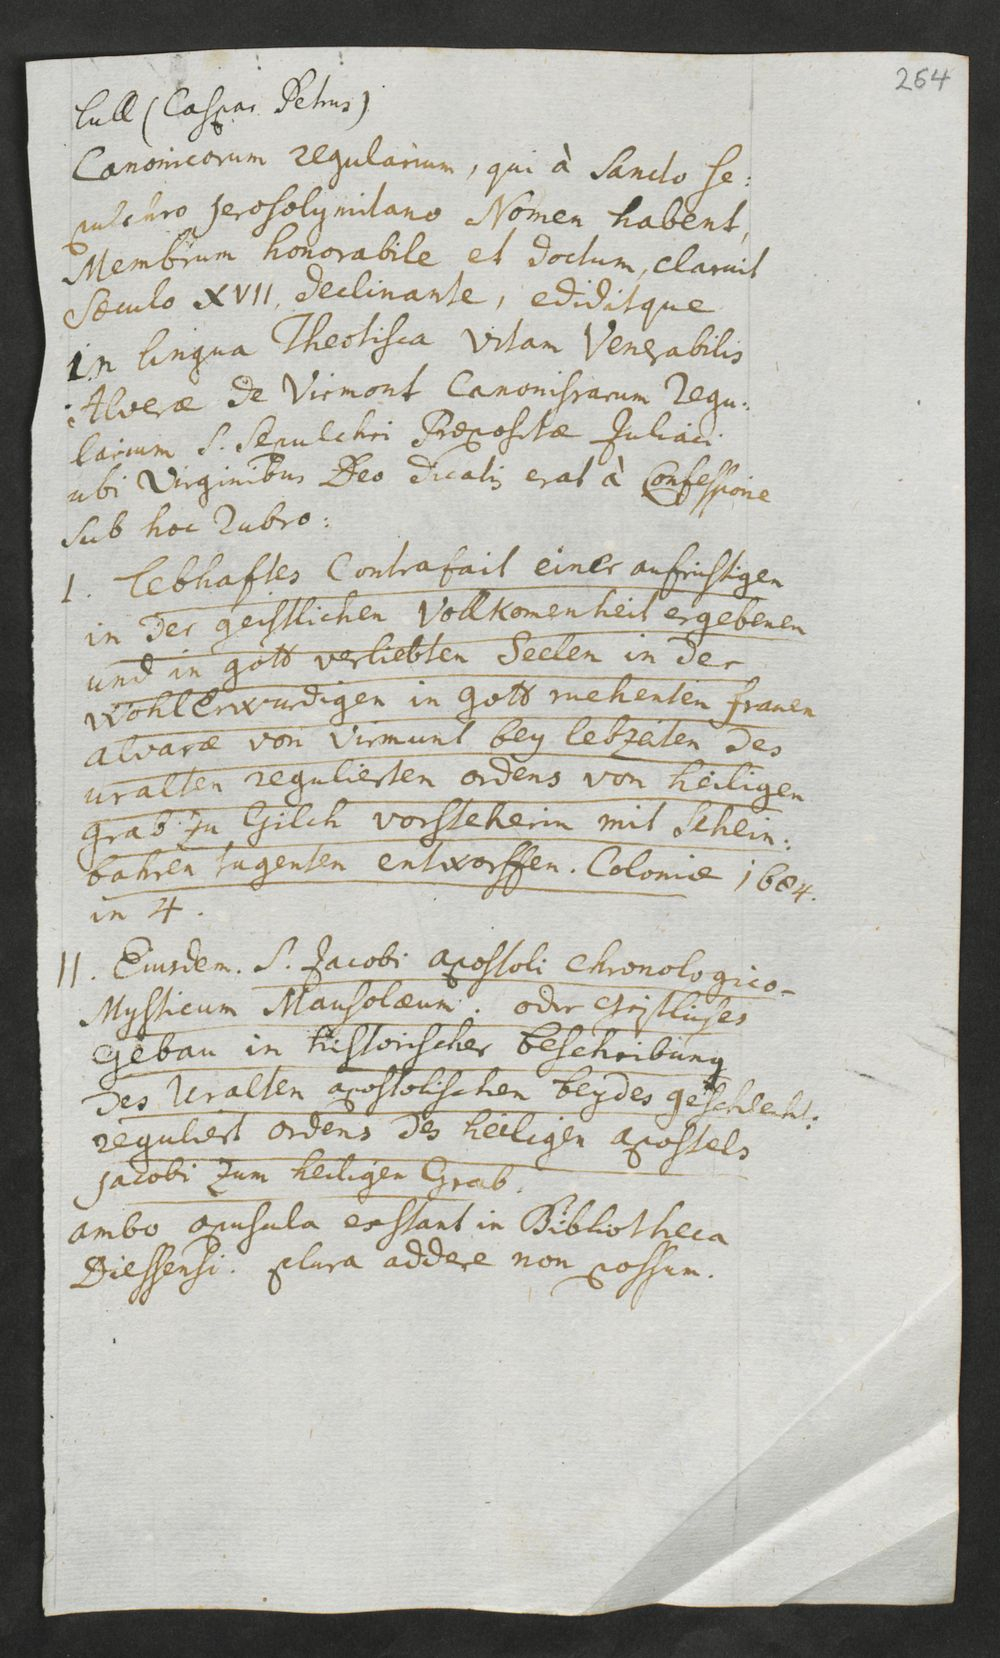 264
Lull (Caspar Petrus)
Canonicorum regularium, qui à Sancto Se:
pulchro Jerosolymitano Nomen habent,
Membrum honorabile et doctum, claruit
Sæculo XVII. declinante, ediditque
in lingua Theotisca Vitam Venerabilis
Alveræ de Virmont Canonissarum Regu:
larium S. Sepulchri Præpositæ Juliaci
ubi Virginibus Deo dicatis erat à Confessione
sub hoc Rubro:
I. Lebhaftes Contrafait einer aufrichtigen
in der geistlichen Vollkomenheit ergebenen
und in gott verliebten Seelen in der
WohlErwurdigen in gott ruehenten frauen
alvaræ von Virmunt bey lebzeiten des
uralten regulierten ordens von heiligen
grab zu Gilch vorsteherin mit Schein:
bahren tugenten entworffen. Coloniæ 1684.
in 4.
II. Eiusdem. S. Jacobi apostoli Chronologico-
Mysticum Mausolæum. oder Geistliches
Gebau in historischer beschribung
des Uralten apostolischen beydes geschlecht:
reguliert ordens des heiligen apostels
Jacobi zum heiligen Grab.
ambo opuscula exstant in Bibliotheca
Diessensi. plura addere non possum.